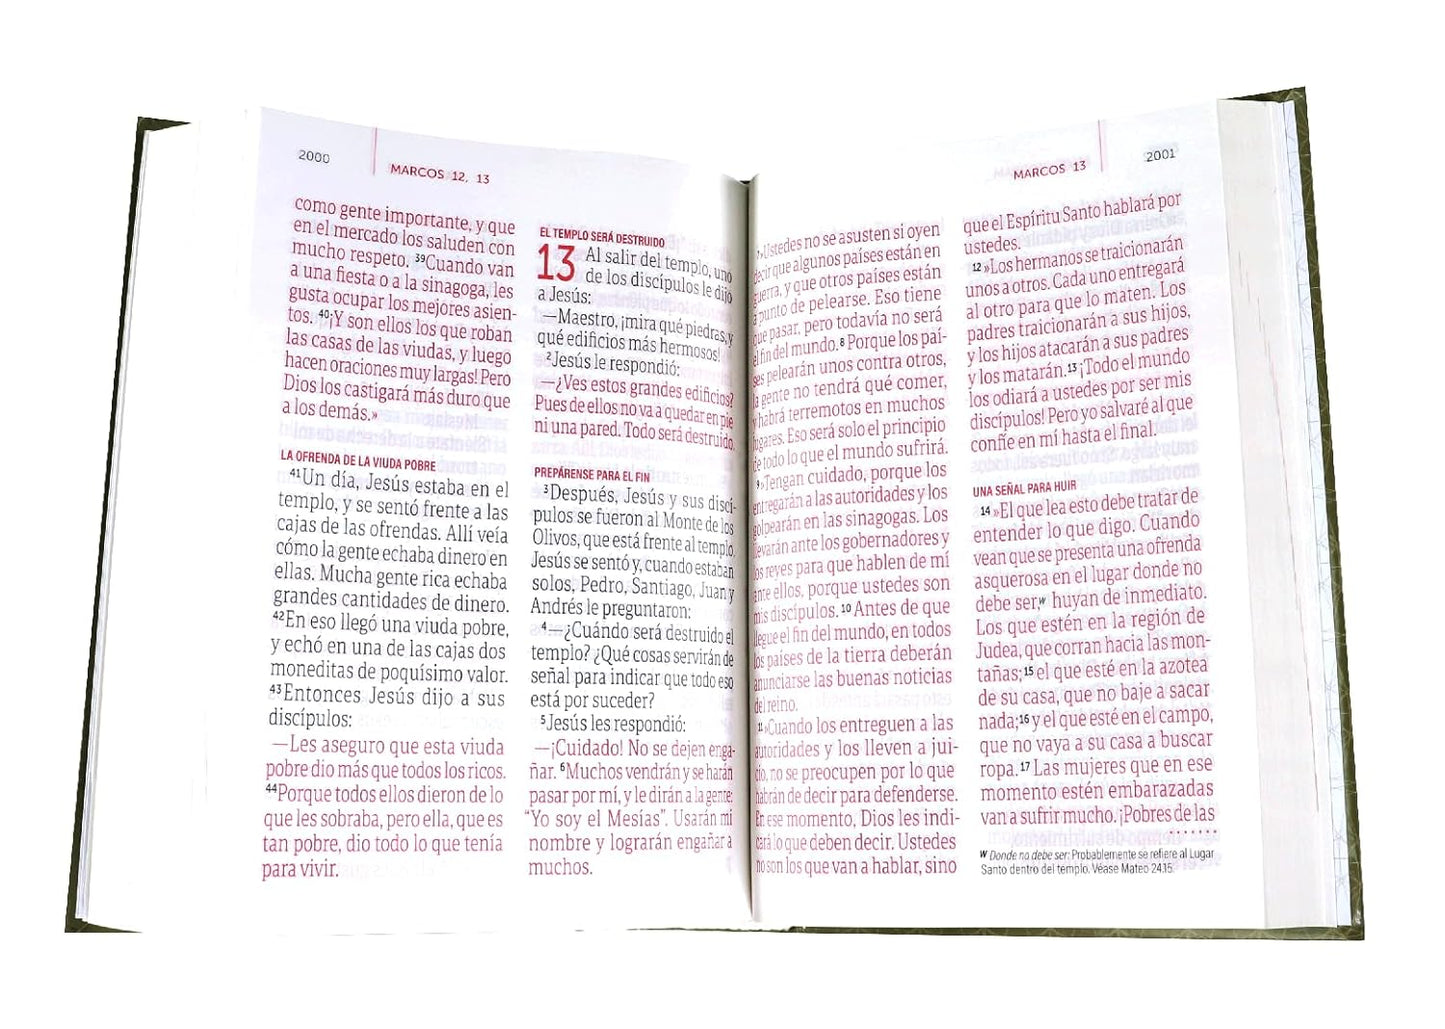 2000
MARCOS 12, 13
como gente importante, y que
en el mercado los saluden con
mucho respeto. 39Cuando van
a una fiesta o a la sinagoga, les
gusta ocupar los mejores asien-
tos. 40¡Y son ellos los que roban
las casas de las viudas, y luego
hacen oraciones muy largas! Pero
Dios los castigará más duro que
a los demás.»
LA OFRENDA DE LA VIUDA POBRE
41Un día, Jesús estaba en el
templo, y se sentó frente a las
cajas de las ofrendas. Allí veía
cómo la gente echaba dinero en
ellas. Mucha gente rica echaba
grandes cantidades de dinero.
42En eso llegó una viuda pobre,
y echó en una de las cajas dos
moneditas de poquísimo valor.
43Entonces Jesús dijo a sus
discípulos:
—Les aseguro que esta viuda
pobre dio más que todos los ricos.
44Porque todos ellos dieron de lo
que les sobraba, pero ella, que es
tan pobre, dio todo lo que tenía
para vivir.
EL TEMPLO SERÁ DESTRUIDO
13 Al salir del templo, uno
de los discípulos le dijo
a Jesús:
—Maestro, ¡mira qué piedras, y
qué edificios más hermosos!
2Jesús le respondió:
—¿Ves estos grandes edificios?
Pues de ellos no va a quedar en pie
ni una pared. Todo será destruido.
PREPÁRENSE PARA EL FIN
3Después, Jesús y sus discí-
pulos se fueron al Monte de los
Olivos, que está frente al templo.
Jesús se sentó y, cuando estaban
solos, Pedro, Santiago, Juan y
Andrés le preguntaron:
4—¿Cuándo será destruido el
templo? ¿Qué cosas servirán de
señal para indicar que todo eso
está por suceder?
5Jesús les respondió:
—¡Cuidado! No se dejen enga-
ñar. 6Muchos vendrán y se harán
pasar por mí, y le dirán a la gente:
“Yo soy el Mesías”. Usarán mi
nombre y lograrán engañar a
muchos.
MARCOS 13
2001
7»Ustedes no se asusten si oyen
decir que algunos países están en
guerra, y que otros países están
a punto de pelearse. Eso tiene
que pasar, pero todavía no será
el fin del mundo. 8 Porque los paí-
ses pelearán unos contra otros,
la gente no tendrá qué comer,
y habrá terremotos en muchos
lugares. Eso será solo el principio
de todo lo que el mundo sufrirá.
9»Tengan cuidado, porque los
entregarán a las autoridades y los
golpearán en las sinagogas. Los
llevarán ante los gobernadores y
los reyes para que hablen de mí
ante ellos, porque ustedes son
mis discípulos. 10 Antes de que
llegue el fin del mundo, en todos
los países de la tierra deberán
anunciarse las buenas noticias
del reino.
11»Cuando los entreguen a las
autoridades y los lleven a jui-
cio, no se preocupen por lo que
habrán de decir para defenderse.
En ese momento, Dios les indi-
cará lo que deben decir. Ustedes
no son los que van a hablar, sino
que el Espíritu Santo hablará por
ustedes.
12»Los hermanos se traicionarán
unos a otros. Cada uno entregará
al otro para que lo maten. Los
padres traicionarán a sus hijos,
y los hijos atacarán a sus padres
y los matarán. 13¡Todo el mundo
los odiará a ustedes por ser mis
discípulos! Pero yo salvaré al que
confíe en mí hasta el final.
UNA SEÑAL PARA HUIR
14 »El que lea esto debe tratar de
entender lo que digo. Cuando
vean que se presenta una ofrenda
asquerosa en el lugar donde no
debe ser,W huyan de inmediato.
Los que estén en la región de
Judea, que corran hacia las mon-
tañas; 15 el que esté en la azotea
de su casa, que no baje a sacar
nada; 16 y el que esté en el campo,
que no vaya a su casa a buscar
ropa. 17 Las mujeres que en ese
momento estén embarazadas
van a sufrir mucho. ¡Pobres de las
W Donde no debe ser: Probablemente se refiere al Lugar
Santo dentro del templo. Véase Mateo 24.15.